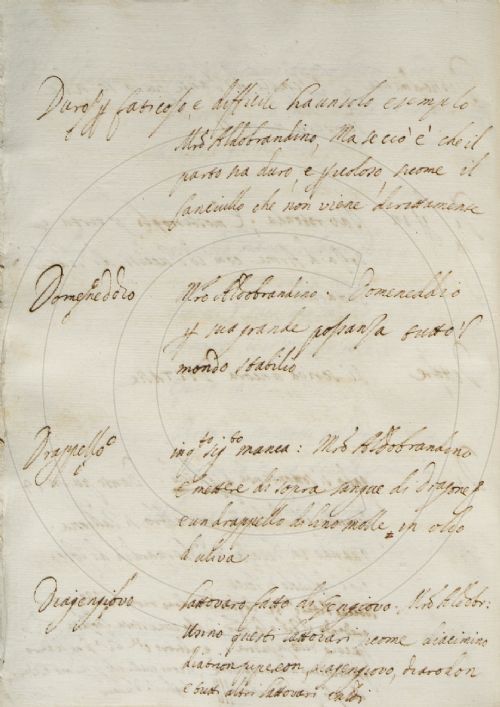 Duro p faticoso, e difficile ha un solo esemplo
Mro Aldobrandino, Ma se ciò è che il
parto sia duro, e picoloso, sicome il
fanciullo che non viene dirittamente
Domeneddio Mro Aldobrandino. Domeneddio
p sua grande possanza tutto l
mondo stabilio
Drappello in qto sigto manca: Mro Aldobrandino
E mettere di sopra sangue di Dragone
e un drappello di lino molle in olio
d'uliva
Diagengiovo lattovaro fatto di Gengiovo. Mro Aldobr:
questi lattovari sicome
diatrion pipereon, diagengiovo, diarodon
e tutti altri lattovari caldi